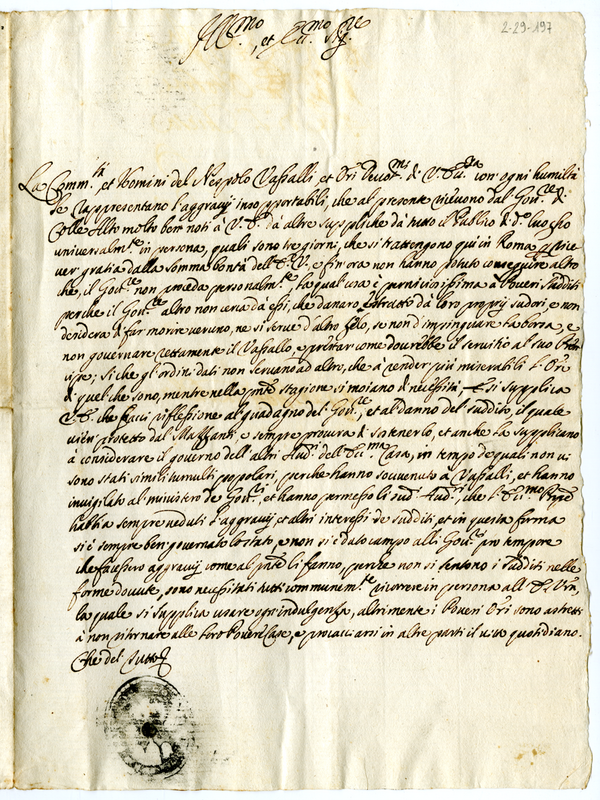 2-29-197
Ill.mo et Ecc.mo Sig.re
La Comm.tà, et Homini del Nespolo Vassalli et Ori Devot.mi di V. Ecc.za con ogni humiltà
Le rappresentano l'aggravij insopportabili, che al presente ricevono dal Gov.re di
Colle Alto molto ben noti à V. E. dà altre suppliche dà tutto il Publico di d.o luocho
universalm.te in persona, quali sono tre giorni, che si trattengono qui in Roma p rice
ver gratia dalla somma bontà dell'E. V. e fin'ora non hanno potuto conseguire altro
che, il Gov.re non proceda personalm.te, la qual cosa è perniciosissima a Poveri sudditi
perche il Gov.re altro non cerca dà essi, che danaro estratto dà loro proprij sudori, e non
desidera di far morire veruno, ne si serve d'altro, se non d'impinguare la borsa, e
non governare rettamente il Vassallo, e prestar come dovrebbe il servitio al suo
; si che gl'ordini dati non servano ad altro, che à render più miserabili l'Ori
di quel che sono, mentre nella pnte stagione si moiano di necessità; si supplica
V. E. che facci riflessione al guadagno del Gov.re, et al danno del suddito, il quale
vien protetto dal Mazzanti, e sempre procura di sostenerlo, et anche la supplicano
à considerare il governo dell'altri Aud.ri dell'Ecc.ma Casa, in tempo de quali non vi
sono stati simili tumulti popolari, perche hanno souvenuto à Vassalli, et hanno
invigilato al ministero de Gov.ri, et hanno permesso li sud.i Aud.ri, che l'Ecc.mo
habbia sempre veduti l'aggravij et altri interessi de sudditi et in questa forma
si è sempre ben governato lo stato, e non si è dato campo alli Gov.ri pro tempore
che facessero aggravij come al pnte li fanno, perche non si sentono i sudditi nelle
forme dovute, sono necessitati tutti communem.te ricorrere in persona all'E. Vra,
la quale si supplica usare ogn'indulgenza, altrimente i Poveri Ori sono astretti
à non ritornare alle loro Povere Case, e procacciarsi in altre parti il vitto quotidiano.
Che del tutto